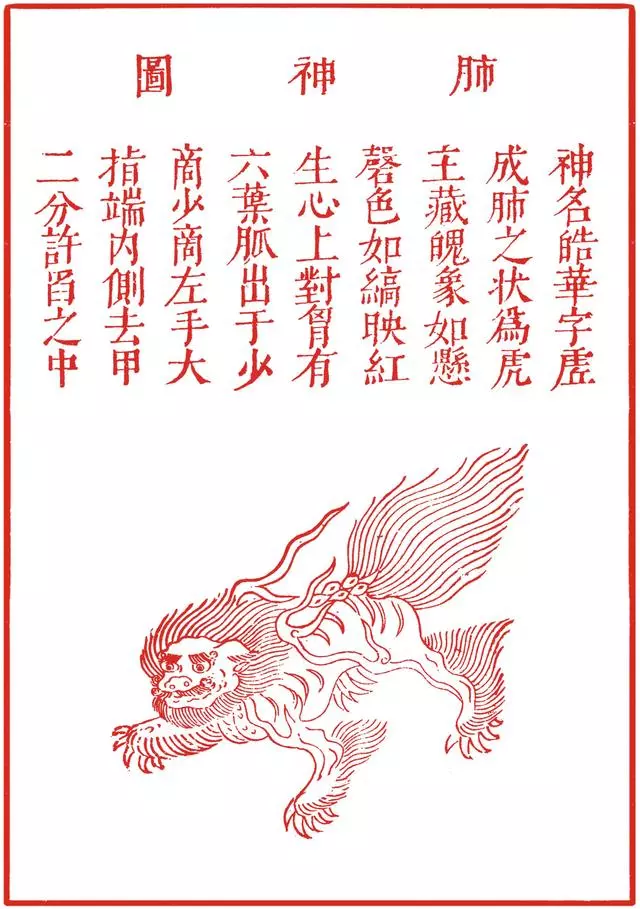 肺神圖
神名皓華字虗
成肺之状爲虎
主藏魄象如懸
磬色如縞映紅
生心上對胷有
六葉脈出于少
商少商左手大
指端内側去甲
二分許舀之中